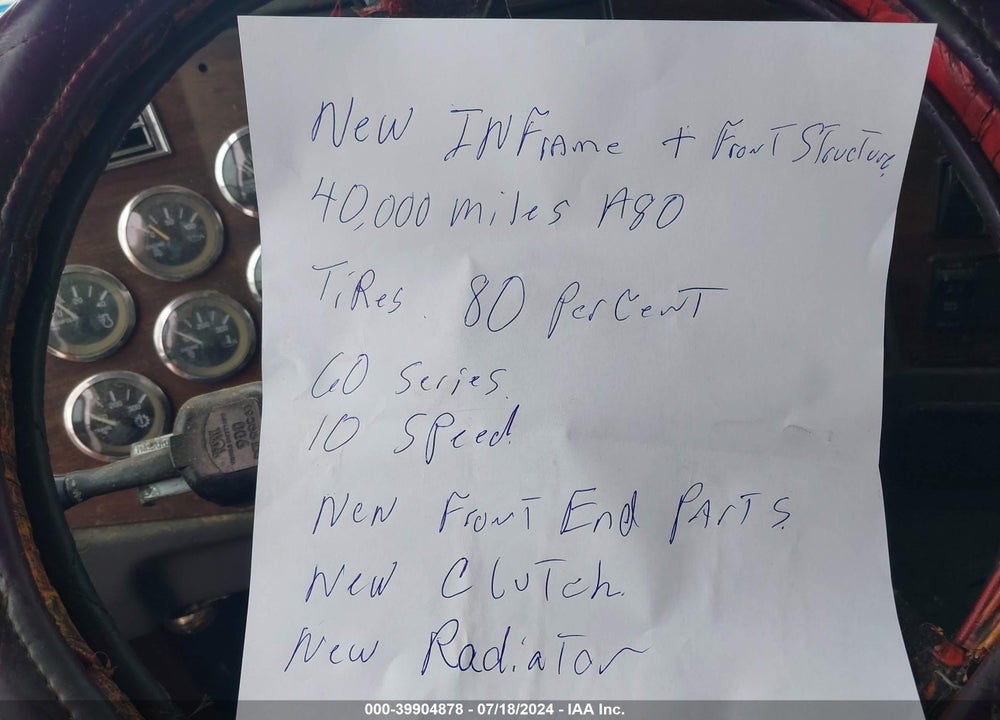 New INFrame + Front Structure
40,000 miles Ago
Tires. 80 Percent
60 Series.
10 Speed.
New Front End Parts
New Clutch.
New Radiator
000-39904878 - 07/18/2024 - IAA Inc.